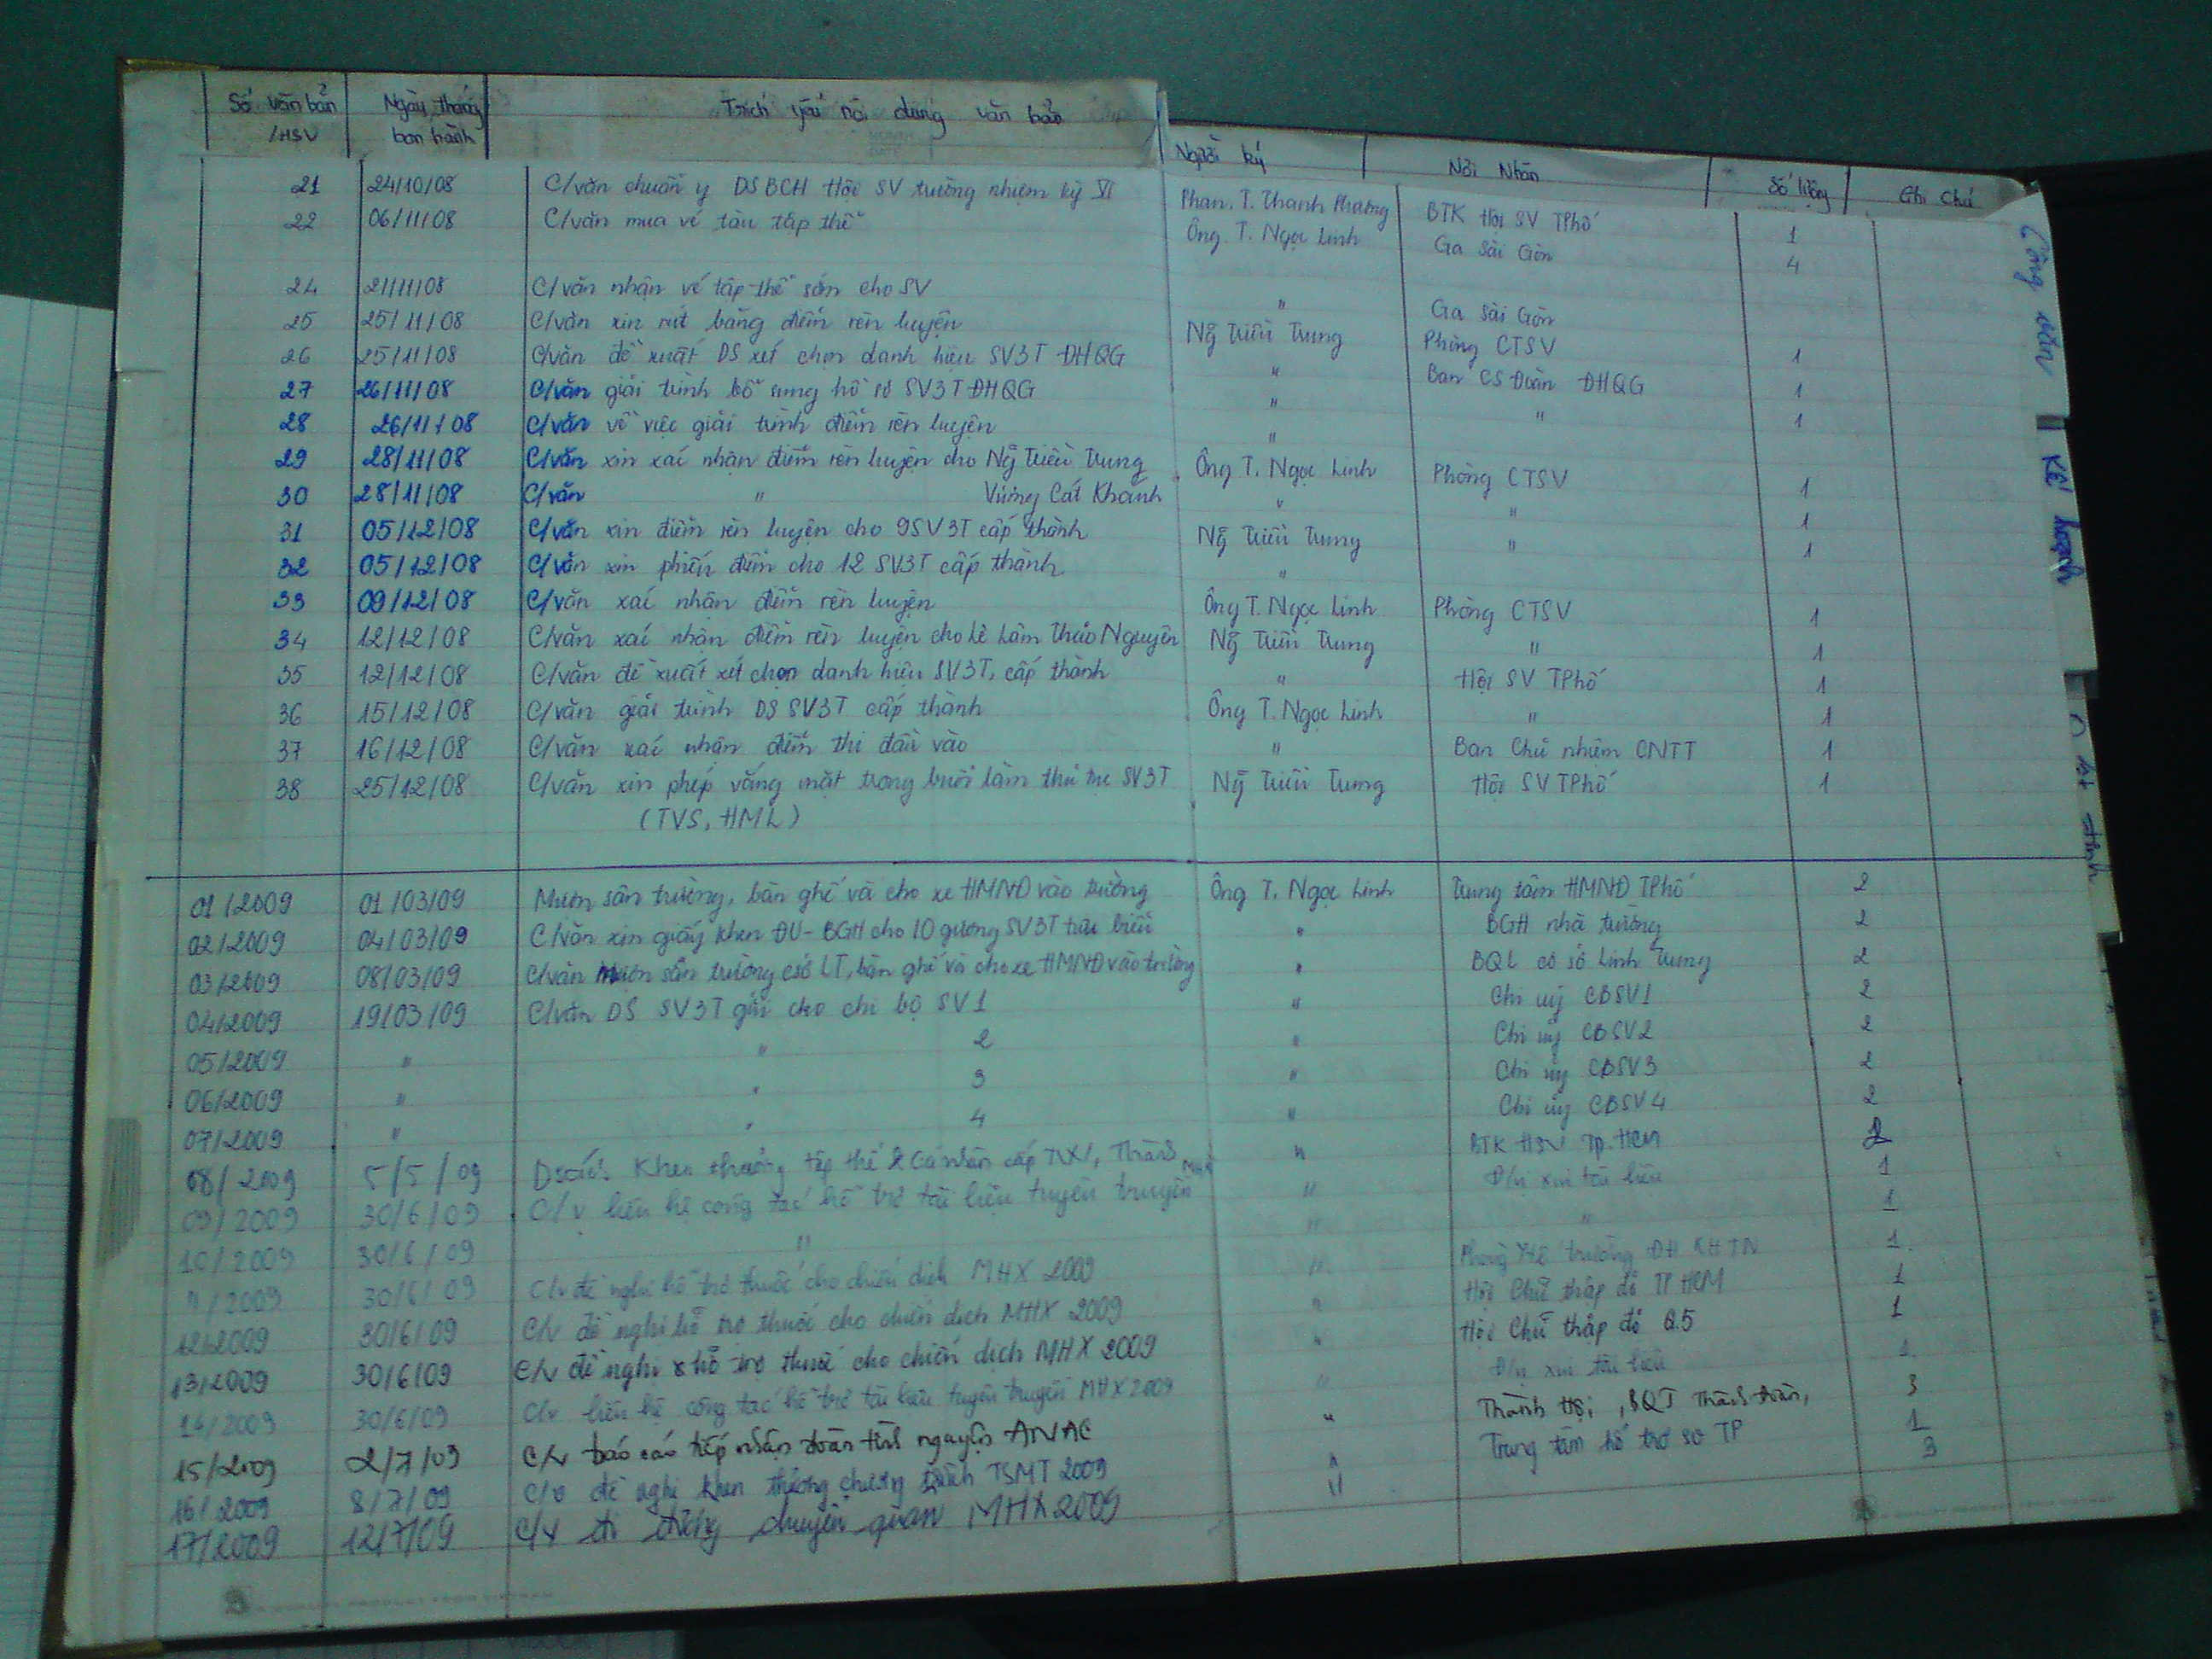 Số văn bản /HSV | Ngày, tháng ban hành | Trích yếu nội dung văn bản | Người ký | Nơi Nhận | Số lượng | Ghi Chú
21 | 24/10/08 | C/văn chuẩn y DS BCH Hội SV trường nhiệm kỳ VI | Phan. T. Thanh Phương | BTK Hội SV TPhố | 1
22 | 06/11/08 | C/văn mua vé tàu tập thể | Ông. T. Ngọc Linh | Ga Sài Gòn | 4
24 | 21/11/08 | C/văn nhận vé tập thể sớm cho SV | " | Ga Sài Gòn
25 | 25/11/08 | C/văn xin rút bảng điểm rèn luyện | Ng̃ Triều Trung | Phòng CTSV | 1
26 | 25/11/08 | C/văn đề xuất DS xét chọn danh hiệu SV3T ĐHQG | " | Ban CS Đoàn ĐHQG | 1
27 | 26/11/08 | C/văn giải trình bổ sung hồ sơ SV3T ĐHQG | " | " | 1
28 | 26/11/08 | C/văn về việc giải trình điểm rèn luyện | "
29 | 28/11/08 | C/văn xin xác nhận điểm rèn luyện cho Ng̃ Triều Trung | Ông T. Ngọc Linh | Phòng CTSV | 1
30 | 28/11/08 | C/văn " Vương Cát Khánh | " | " | 1
31 | 05/12/08 | C/văn xin điểm rèn luyện cho 9SV3T cấp thành | Ng̃ Triều Trung | " | 1
32 | 05/12/08 | C/văn xin phiếu điểm cho 12 SV3T cấp thành | "
33 | 09/12/08 | C/văn xác nhận điểm rèn luyện | Ông T. Ngọc Linh | Phòng CTSV | 1
34 | 12/12/08 | C/văn xác nhận điểm rèn luyện cho Lê Lâm Thảo Nguyên | Ng̃ Triều Trung | " | 1
35 | 12/12/08 | C/văn đề xuất xét chọn danh hiệu SV3T, cấp thành | " | Hội SV TPhố | 1
36 | 15/12/08 | C/văn giải trình DS SV3T cấp thành | Ông T. Ngọc Linh | " | 1
37 | 16/12/08 | C/văn xác nhận điểm thi đầu vào | " | Ban Chủ nhiệm CNTT | 1
38 | 25/12/08 | C/văn xin phép vắng mặt trong buổi làm thủ tục SV3T | Ng̃ Triều Trung | Hội SV TPhố | 1
(TVS, HML)
01/2009 | 01/03/09 | Mượn sân trường, bàn ghế và cho xe HMNĐ vào trường | Ông T. Ngọc Linh | Trung tâm HMNĐ TPhố | 2
02/2009 | 04/03/09 | C/văn xin giấy khen ĐU-BGH cho 10 gương SV3T tiêu biểu | " | BGH nhà trường | 2
03/2009 | 08/03/09 | C/văn Mượn sân trường csở LT, bàn ghế và cho xe HMNĐ vào trường | " | BQL cơ sở Linh Trung | 2
04/2009 | 19/03/09 | C/văn DS SV3T gửi cho chi bộ SV1 | " | Chi uỷ CBSV1 | 2
05/2009 | " | " 2 | " | Chi uỷ CBSV2 | 2
06/2009 | " | " 3 | " | Chi uỷ CBSV3 | 2
07/2009 | " | " 4 | " | Chi uỷ CBSV4 | 2
08/2009 | 5/5/09 | Dsách Khen thưởng tập thể & Cá nhân cấp TW, Thành | " | BTK HSV Tp.HCM | 2
09/2009 | 30/6/09 | C/v liên hệ công tác hỗ trợ tài liệu tuyên truyền | " | Đ/vị xin tài liệu | 1
10/2009 | 30/6/09 | " | " | " | 1
11/2009 | 30/6/09 | C/v đề nghị hỗ trợ thuốc cho chiến dịch MHX 2009 | " | Phòng Y tế trường ĐH KHTN | 1
12/2009 | 30/6/09 | C/v đề nghị hỗ trợ thuốc cho chiến dịch MHX 2009 | " | Hội Chữ thập đỏ TP HCM | 1
13/2009 | 30/6/09 | C/v đề nghị hỗ trợ thuốc cho chiến dịch MHX 2009 | " | Hội Chữ thập đỏ Q.5 | 1
14/2009 | 30/6/09 | C/v liên hệ công tác hỗ trợ tài liệu tuyên truyền MHX 2009 | " | Đ/vị xin tài liệu | 1
15/2009 | 2/7/09 | C/v báo cáo tiếp nhận đoàn tình nguyện ANAC | " | Thành Hội, BQT Thành đoàn, | 3
16/2009 | 8/7/09 | C/v đề nghị khen thưởng chương trình TSMT 2009 | " | Trung tâm hỗ trợ SV TP | 1
17/2009 | 12/7/09 | C/v đi chuyên quan MHX 2009 | " | 3
Công văn
Kế hoạch